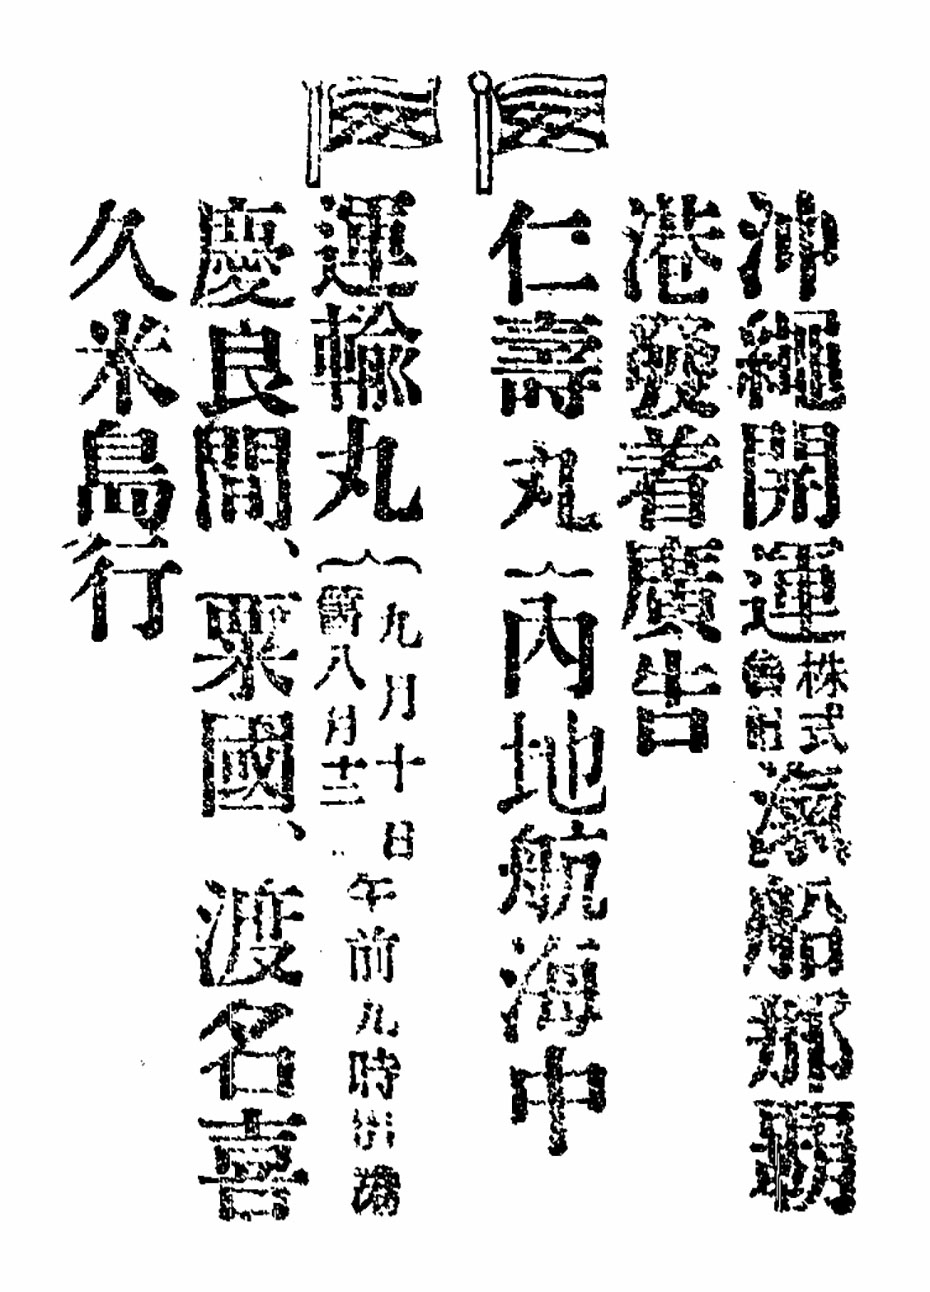 沖繩開運株式會社滊船那覇
港發着廣告
仁壽丸{內地航海中
運輸丸{九月十日
舊八月十二
午前九時出港
慶良間、粟國、渡名喜
久米島行